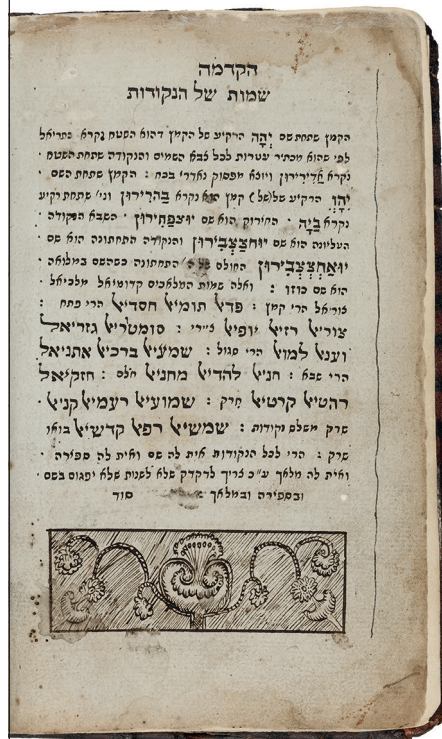 הקדמה
שמות של הנקודות
הקמץ שתחת שם יְהָה הרקיע של הקמץ דהוא השטח נקרא
לפי שהוא מכתיר עטרות לכל צבא השמים והנקודה שתחת השטח
נקרא אֲדִירִירוֹן ויוצא מפסוק נאדרי בכח : הקמץ שתחת השם
יְהָוָ הרקיע של (של) קמץ הוא נקרא בַּהִרִירוֹן וני' שתחת רקיע
נקרא בִּיָה החירוק הוא שם יוּצֲפַּחִירוֹן השבא הנקודה
העליונה הוא שם והנקודה התחתונה הוא שם
החולם התחתונה כשהשם במלואה
הוא שם כוזו : ואלה שמות המלאכים קדומיאל מלכיאל
צוריאל הרי קמץ : פדאל תומיאל חסדיאל הרי פתח :
צוריאל רזיאל יופיאל צירי : סוטטריאל גזריאל
וענאל למואל הרי סגול : שמעיאל ברכיאל אתניאל
הרי שבא : חניאל להדיאל מחניאל חולם : חזקיאל
רהטיאל קרטיאל חירק : שמועיאל רעמיאל קניאל
שרק משלש נקודות : שמשיאל רפאל קדשיאל בואו
שרק : הרי לכל הנקודות אית לה שם ואית לה ספירה
ואית לה מלאך ע"כ צריך לדקדק שלא לשנות שלא יפגום בשם
ובספירה ובמלאך סוד